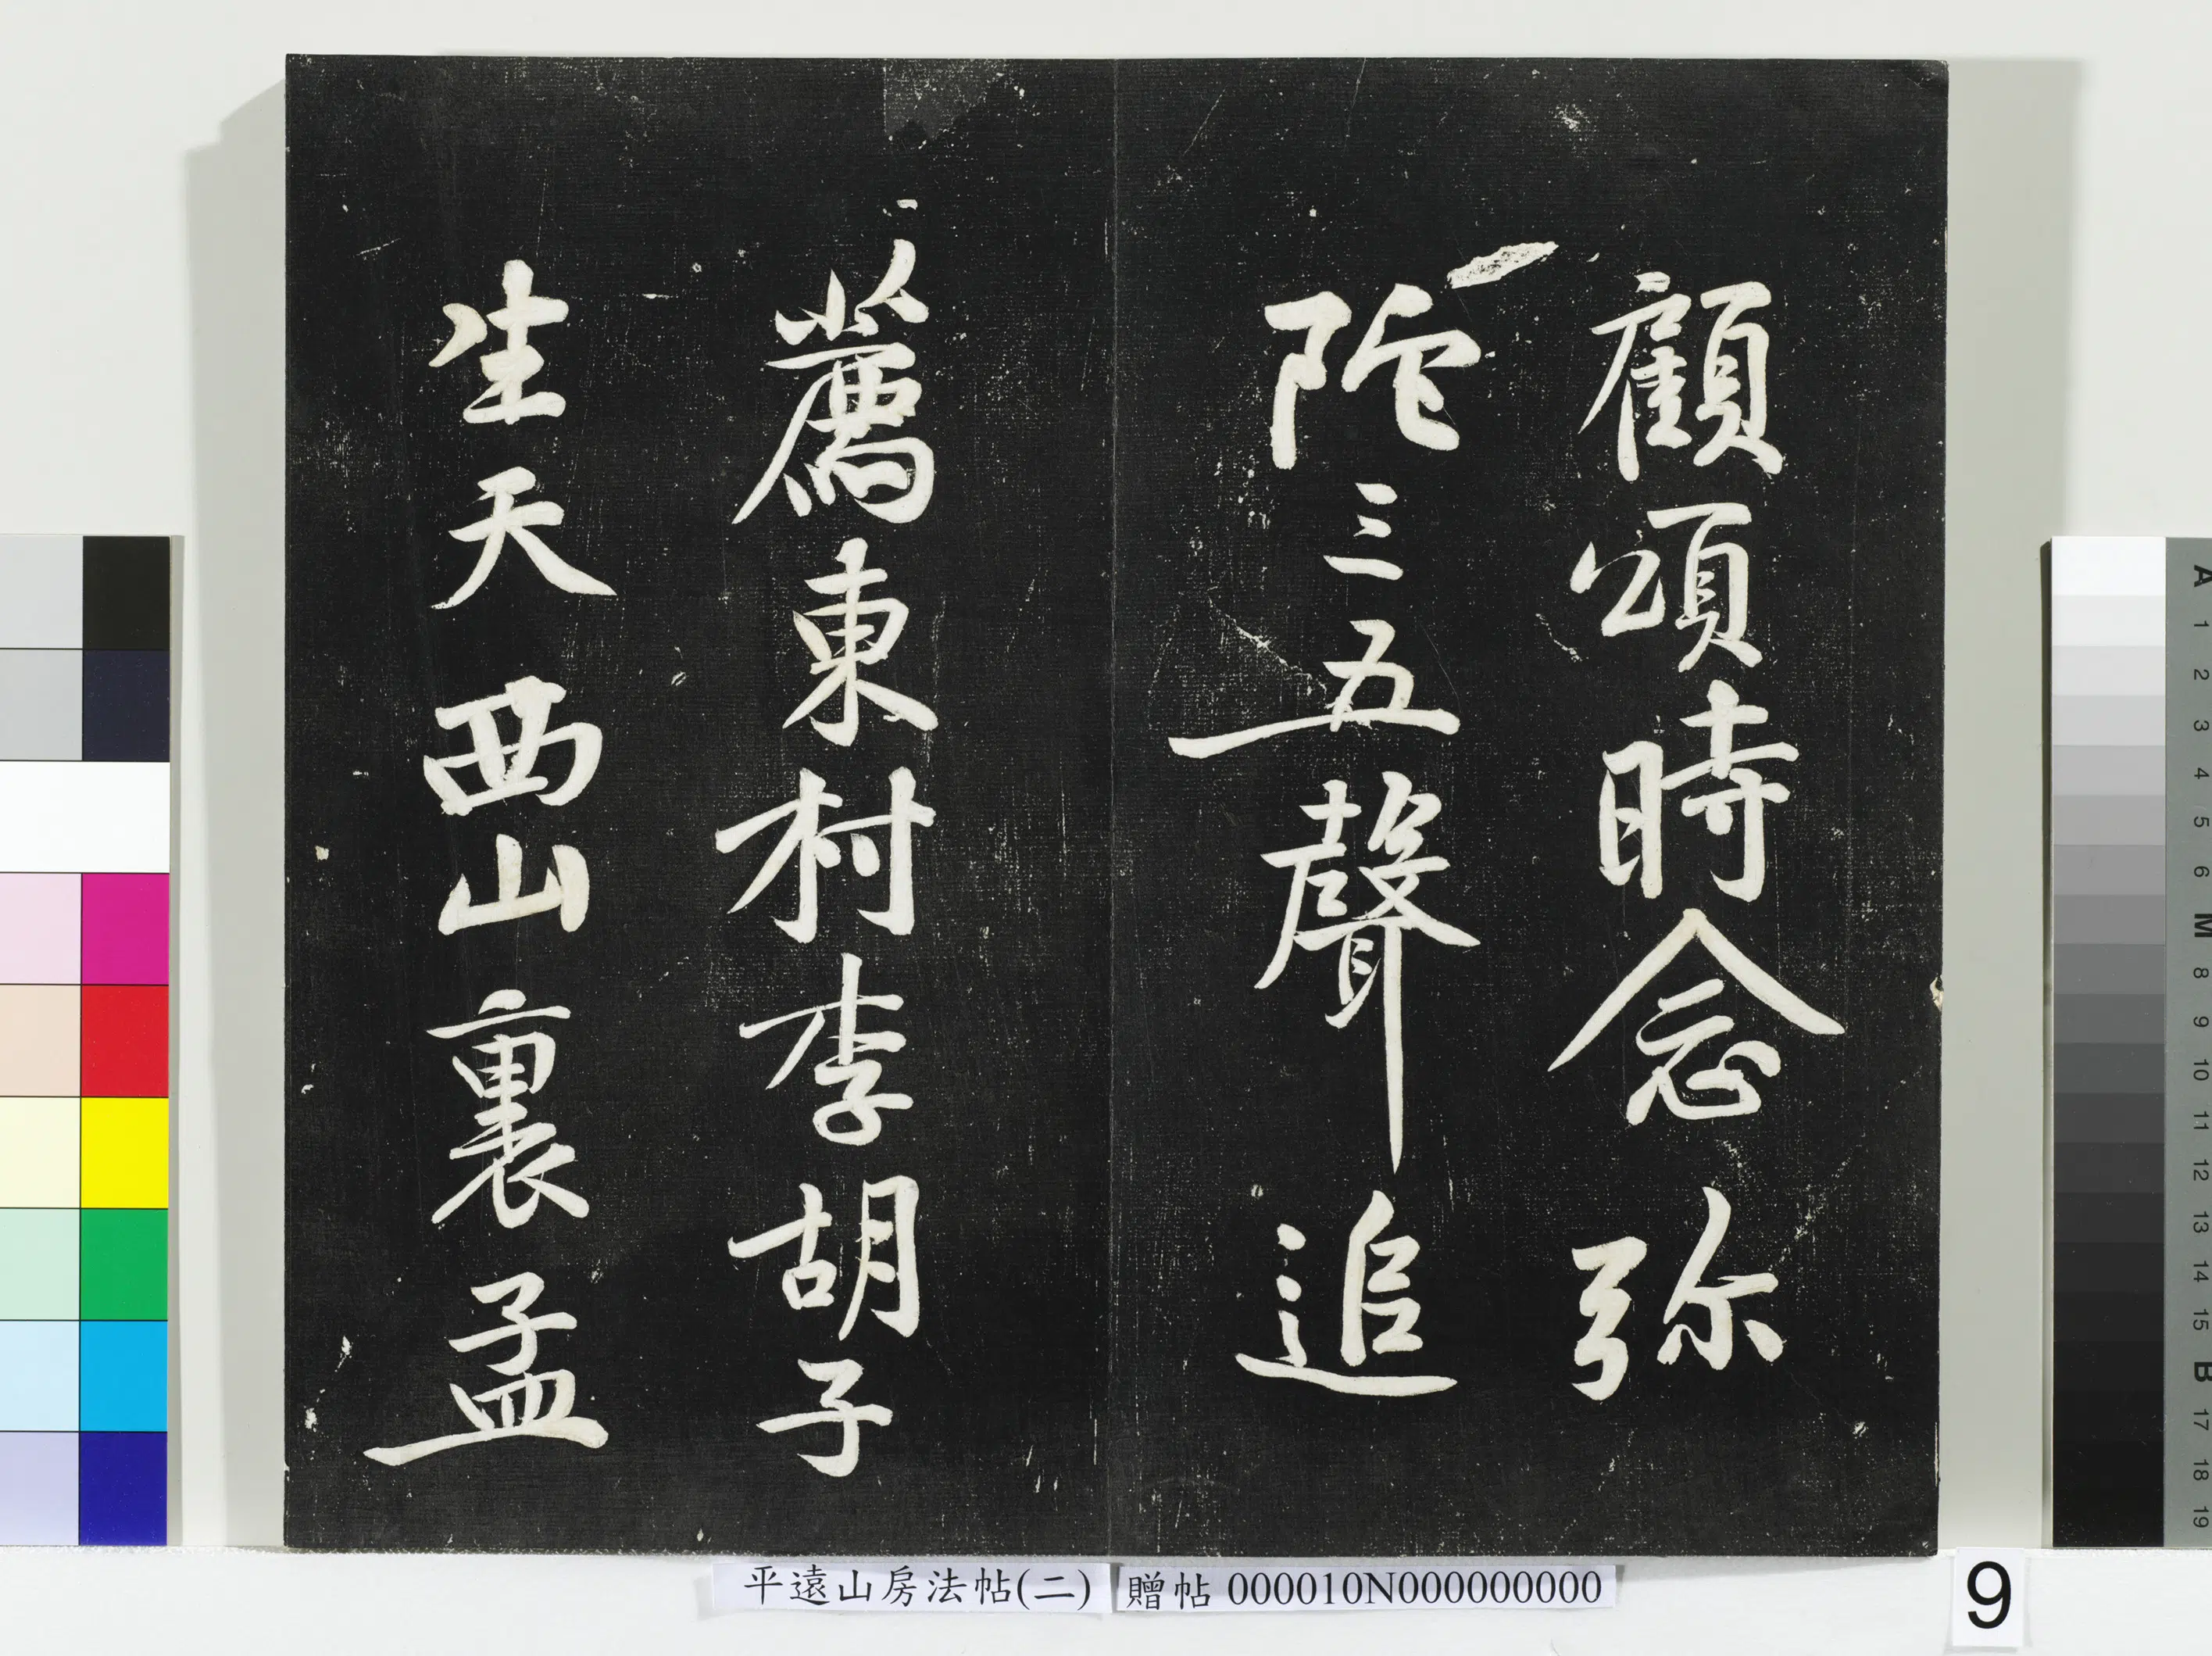 顧頌時念弥
陀三五聲追
薦東村李胡子
生天西山裏孟
平遠山房法帖(二)
贈帖 000010N000000000
9
A 1 2 3 4 5 6 M 8 9 10 11 12 13 14 15 B 17 18 19